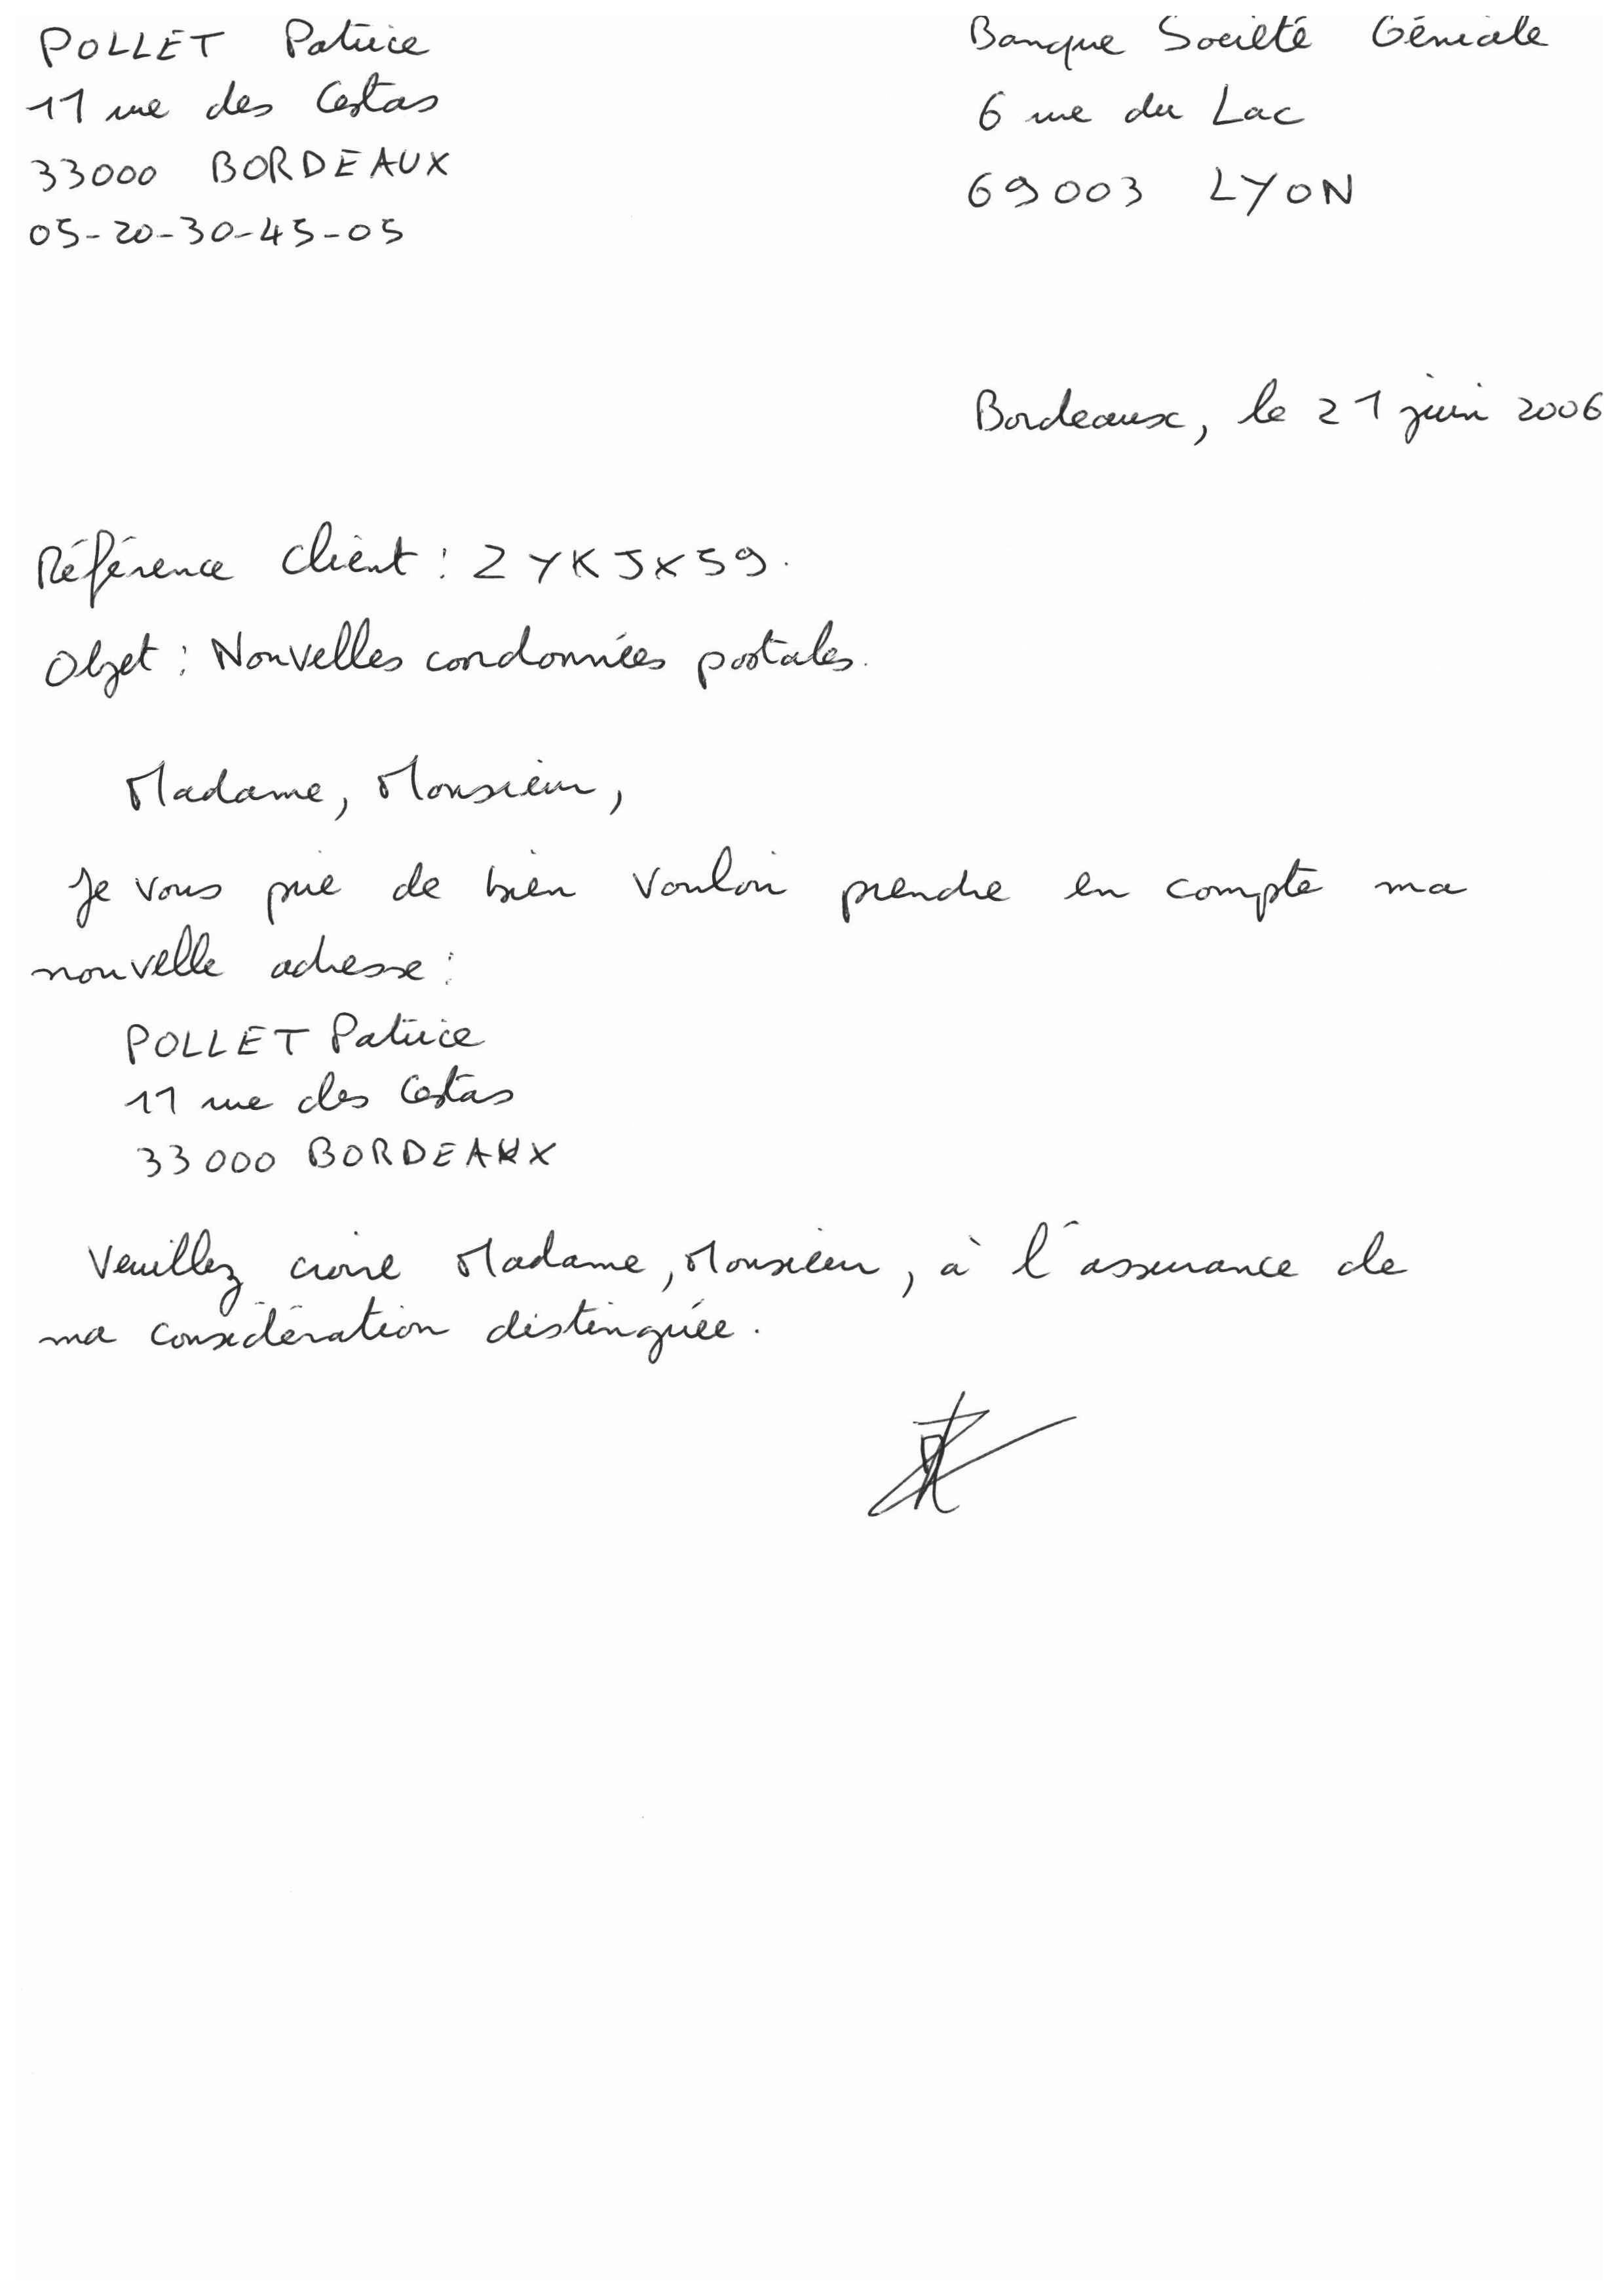 POLLET Patrice
11 rue des Cestas
33000 BORDEAUX
05-20-30-45-05
Banque Société Géniale
6 rue du Lac
69003 LYON
Bordeaux, le 21 juin 2006
Référence client : ZYKJX59.
Objet : Nouvelles coordonnées postales.
Madame, Monsieur,
Je vous prie de bien vouloir prendre en compte ma
nouvelle adresse :
POLLET Patrice
11 rue des Cestas
33000 BORDEAUX
Veuillez croire Madame, Monsieur, à l'assurance de
ma considération distinguée.